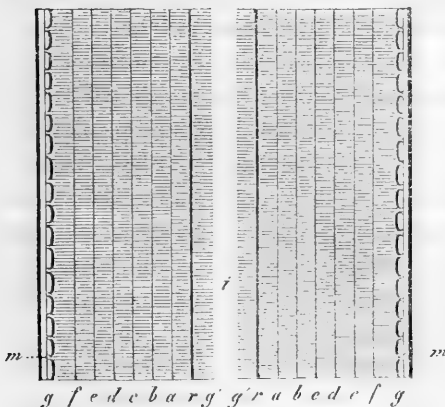 i
m m
g f e d c b a r g' g' r a b c d e f g